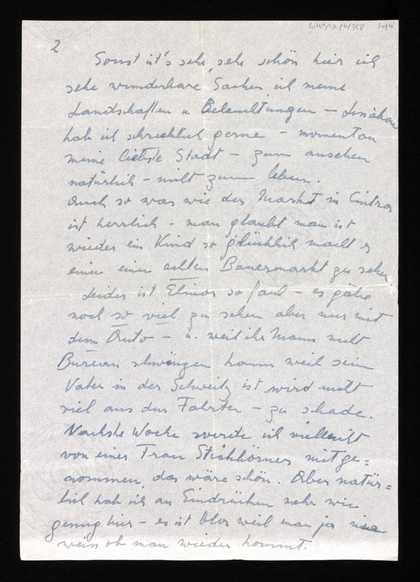 2
Sonst ist's sehr sehr schön hier ich
sehe wunderbare Sachen ich meine
Landschaften u Beleuchtungen – Lissabon
hab ich schrecklich gerne – momentan
meine liebste Stadt – zum ansehen
natürlich – nicht zum leben.
Auch so was wie der Markt in Cintra
ist herrlich – man glaubt man ist
wieder ein Kind so glücklich macht es
einen einen echten Bauernmarkt zu sehen
Leider ist so faul – es gäbe
noch so viel zu sehen aber nur mit
dem Auto – u. weil ihr Mann nicht
Bureau schwänzen kann weil sein
Vater in der Schweiz ist wird nicht
viel aus den Fahrten – zu schade.
Nächste Woche werde ich vielleicht
von einer Frau mitge=
nommen, das wäre schön. Aber natür=
lich hab ich an Eindrücken mehr wie
genug hier – es ist blos weil man ja nie
weiss ob man wieder kommt.